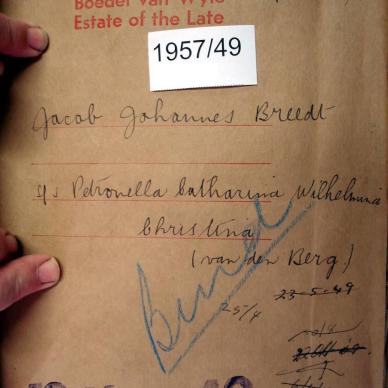 Boedel van Wyle
Estate of the Late
1957/49
Jacob Johannes Breedt
s/s Petronella Catharina Wilhelmina
Christina
(van den Berg.)
23-5-49
25/4